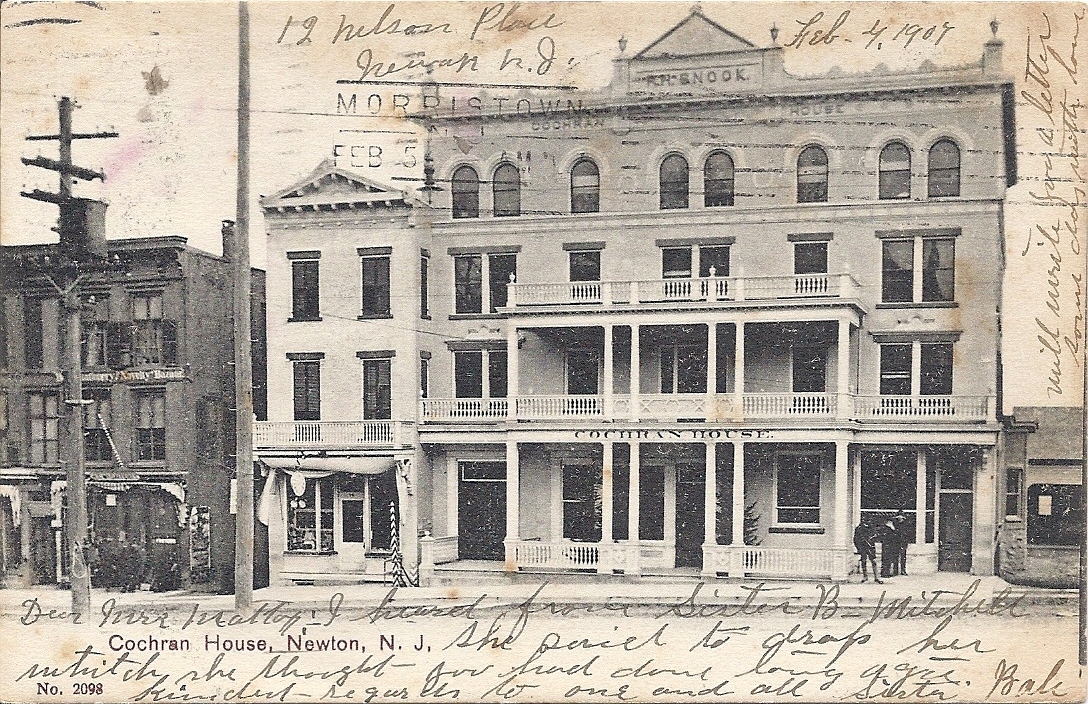 12 Nelson Place
Newark N.J.
Feb. 4, 1907
MORRISTOWN
N. J.
FEB 5 AM
SNOOK.
COCHRAN HOUSE
COCHRAN HOUSE.
will write you a letter
some day with love
Dear Mrs I heard from Sister B Mitchell
Cochran House, Newton, N. J, She said to drop her
which she thought you had done long ago.
No. 2098 kindest regards to one and all Sister